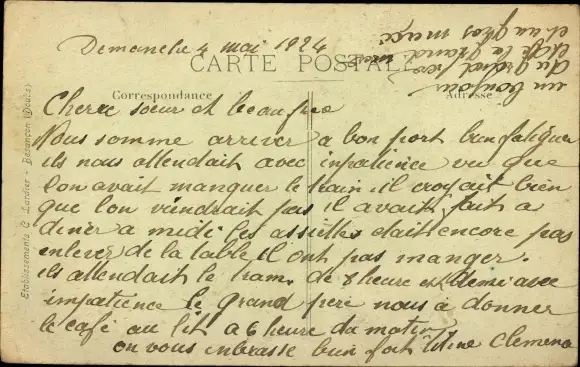 Demanche 4 mai 1924
CARTE POSTALE
Correspondance
Adresse
un bonjour
du grand père
et de la grand mère
et un gros
Cherre soeur et beaufrere
Nous somme arriver a bon port bien fatiguer
ils nous attendait avec inpatience vu que
l'on avait manquer le train. il croyait bien
que l'on viendrait pas il avait fait a
diner a midi les assiettes etait encore pas
enlever de la table il ont pas manger.
ils attendait le tram. de 8 heure et demi avec
impatience le grand pere nous a donner
le café au lit a 6 heure du matin
on vous enbrasse bien fort Clemence
Etablissements C. Lardier - Besançon (Doubs)